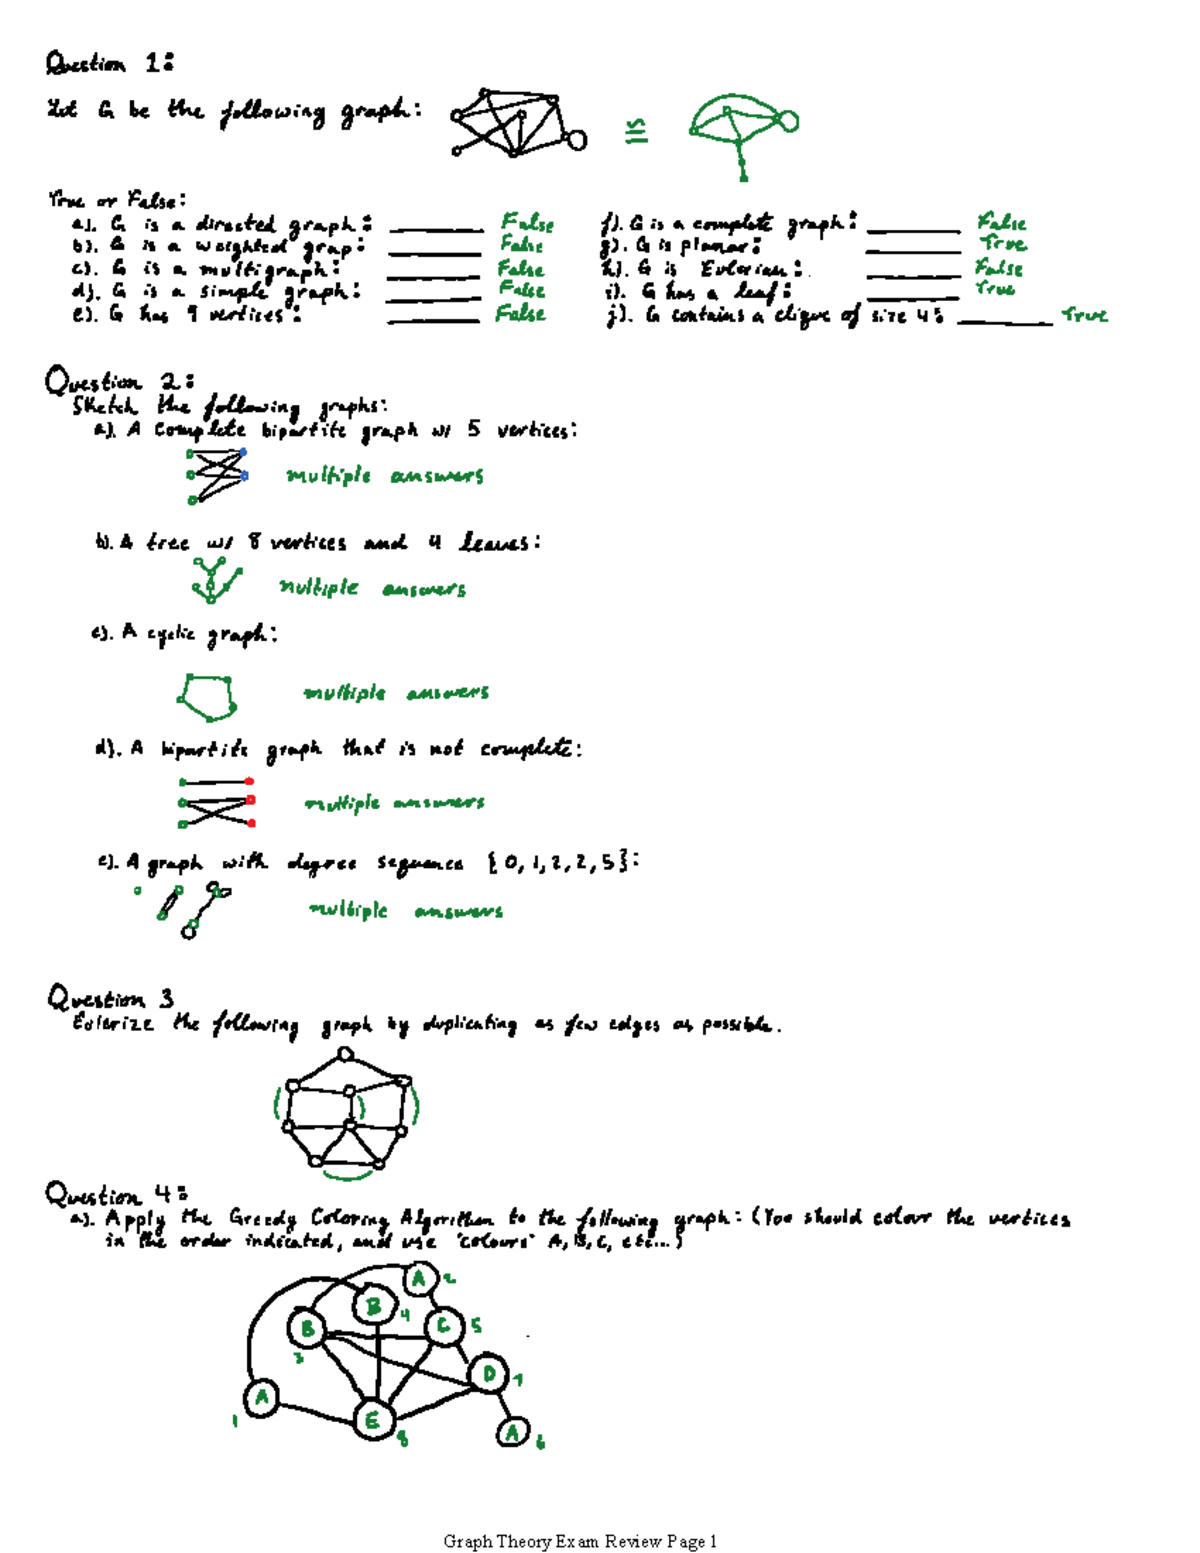 Question 1:
Let G be the following graph:
≅
True or False:
a). G is a directed graph: ________ False
b). G is a weighted grap: ________ False
c). G is a multigraph: ________ False
d). G is a simple graph: ________ False
e). G has 9 vertices: ________ False
f). G is a complete graph: ________ False
g). G is planar: ________ True
h). G is Eulerian: ________ False
i). G has a leaf: ________ True
j). G contains a clique of size 4: ________ True
Question 2:
Sketch the following graphs:
a). A complete bipartite graph w/ 5 vertices:
multiple answers
b). A tree w/ 8 vertices and 4 leaves:
multiple answers
c). A cyclic graph:
multiple answers
d). A bipartite graph that is not complete:
multiple answers
e). A graph with degree sequence {0, 1, 2, 2, 5}:
multiple answers
Question 3
Eulerize the following graph by duplicating as few edges as possible.
Question 4:
a). Apply the Greedy Coloring Algorithm to the following graph: (You should colour the vertices
in the order indicated, and use "colours" A, B, C, etc...)
A 2
B 4
B 3
C 5
D 7
A 1
E 8
A 6
Graph Theory Exam Review Page 1